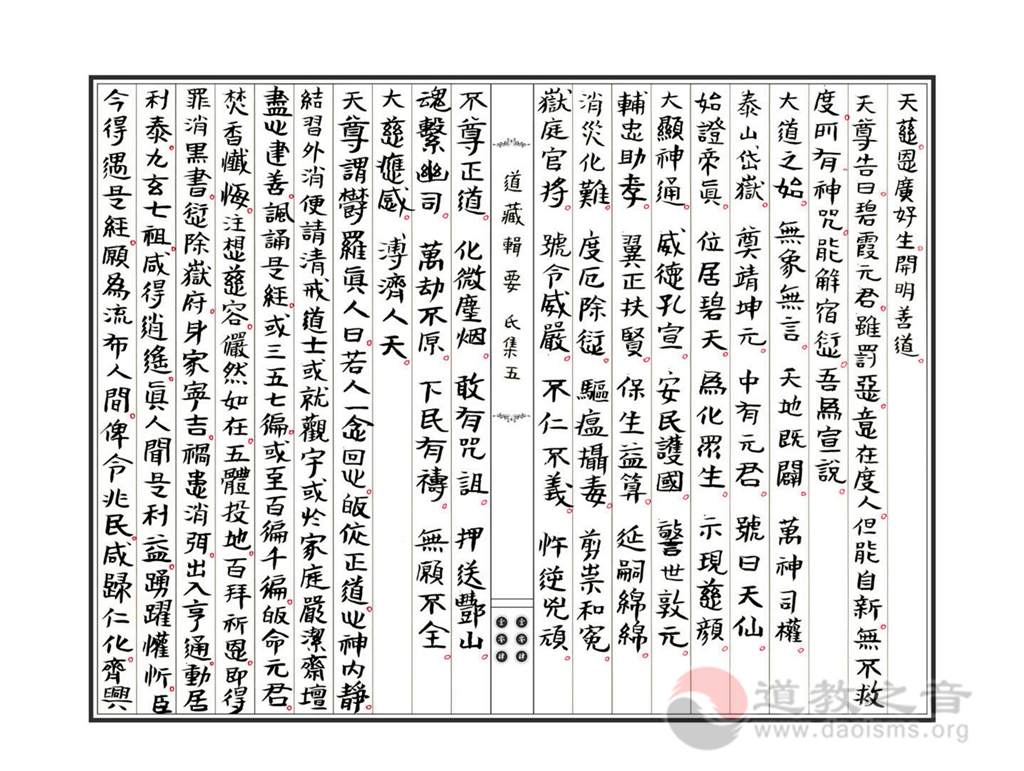 天慈恩廣好生開明善道
天尊告曰碧霞元君雖罰惡意在度人但能自新無不救
度所有神咒能解宿愆吾為宣說
大道之始 無象無言 天地既闢 萬神司權
泰山岱嶽 奠靖坤元 中有元君 號曰天仙
始證帝真 位居碧天 為化眾生 示現慈顏
大顯神通 威德孔宣 安民護國 警世敦元
輔忠助孝 翼正扶賢 保生益算 延嗣綿綿
消災化難 度厄除愆 驅瘟攝毒 剪祟和冤
嶽庭官將 號令威嚴 不仁不義 忤逆兇頑
道藏輯要 氐集五
不尊正道 化微塵烟 敢有咒詛 押送酆山
魂繫幽司 萬劫不原 下民有禱 無願不全
大慈應感 溥濟人天
天尊謂鬱羅真人曰若人一念回心皈依正道心神內靜
結習外消便請清戒道士或就觀宇或於家庭嚴潔齋壇
盡心建善諷誦是經或三五七徧或至百徧千徧皈命元君
焚香懺悔注想慈容儼然如在五體投地百拜祈恩即得
罪消黑書愆除嶽府身家寧吉禍患消弭出入亨通動居
利泰九玄七祖咸得逍遙真人聞是利益踴躍懽忻臣
今得遇是經願為流布人間俾令兆民咸歸仁化齊興
道教之音
www.daoisms.org